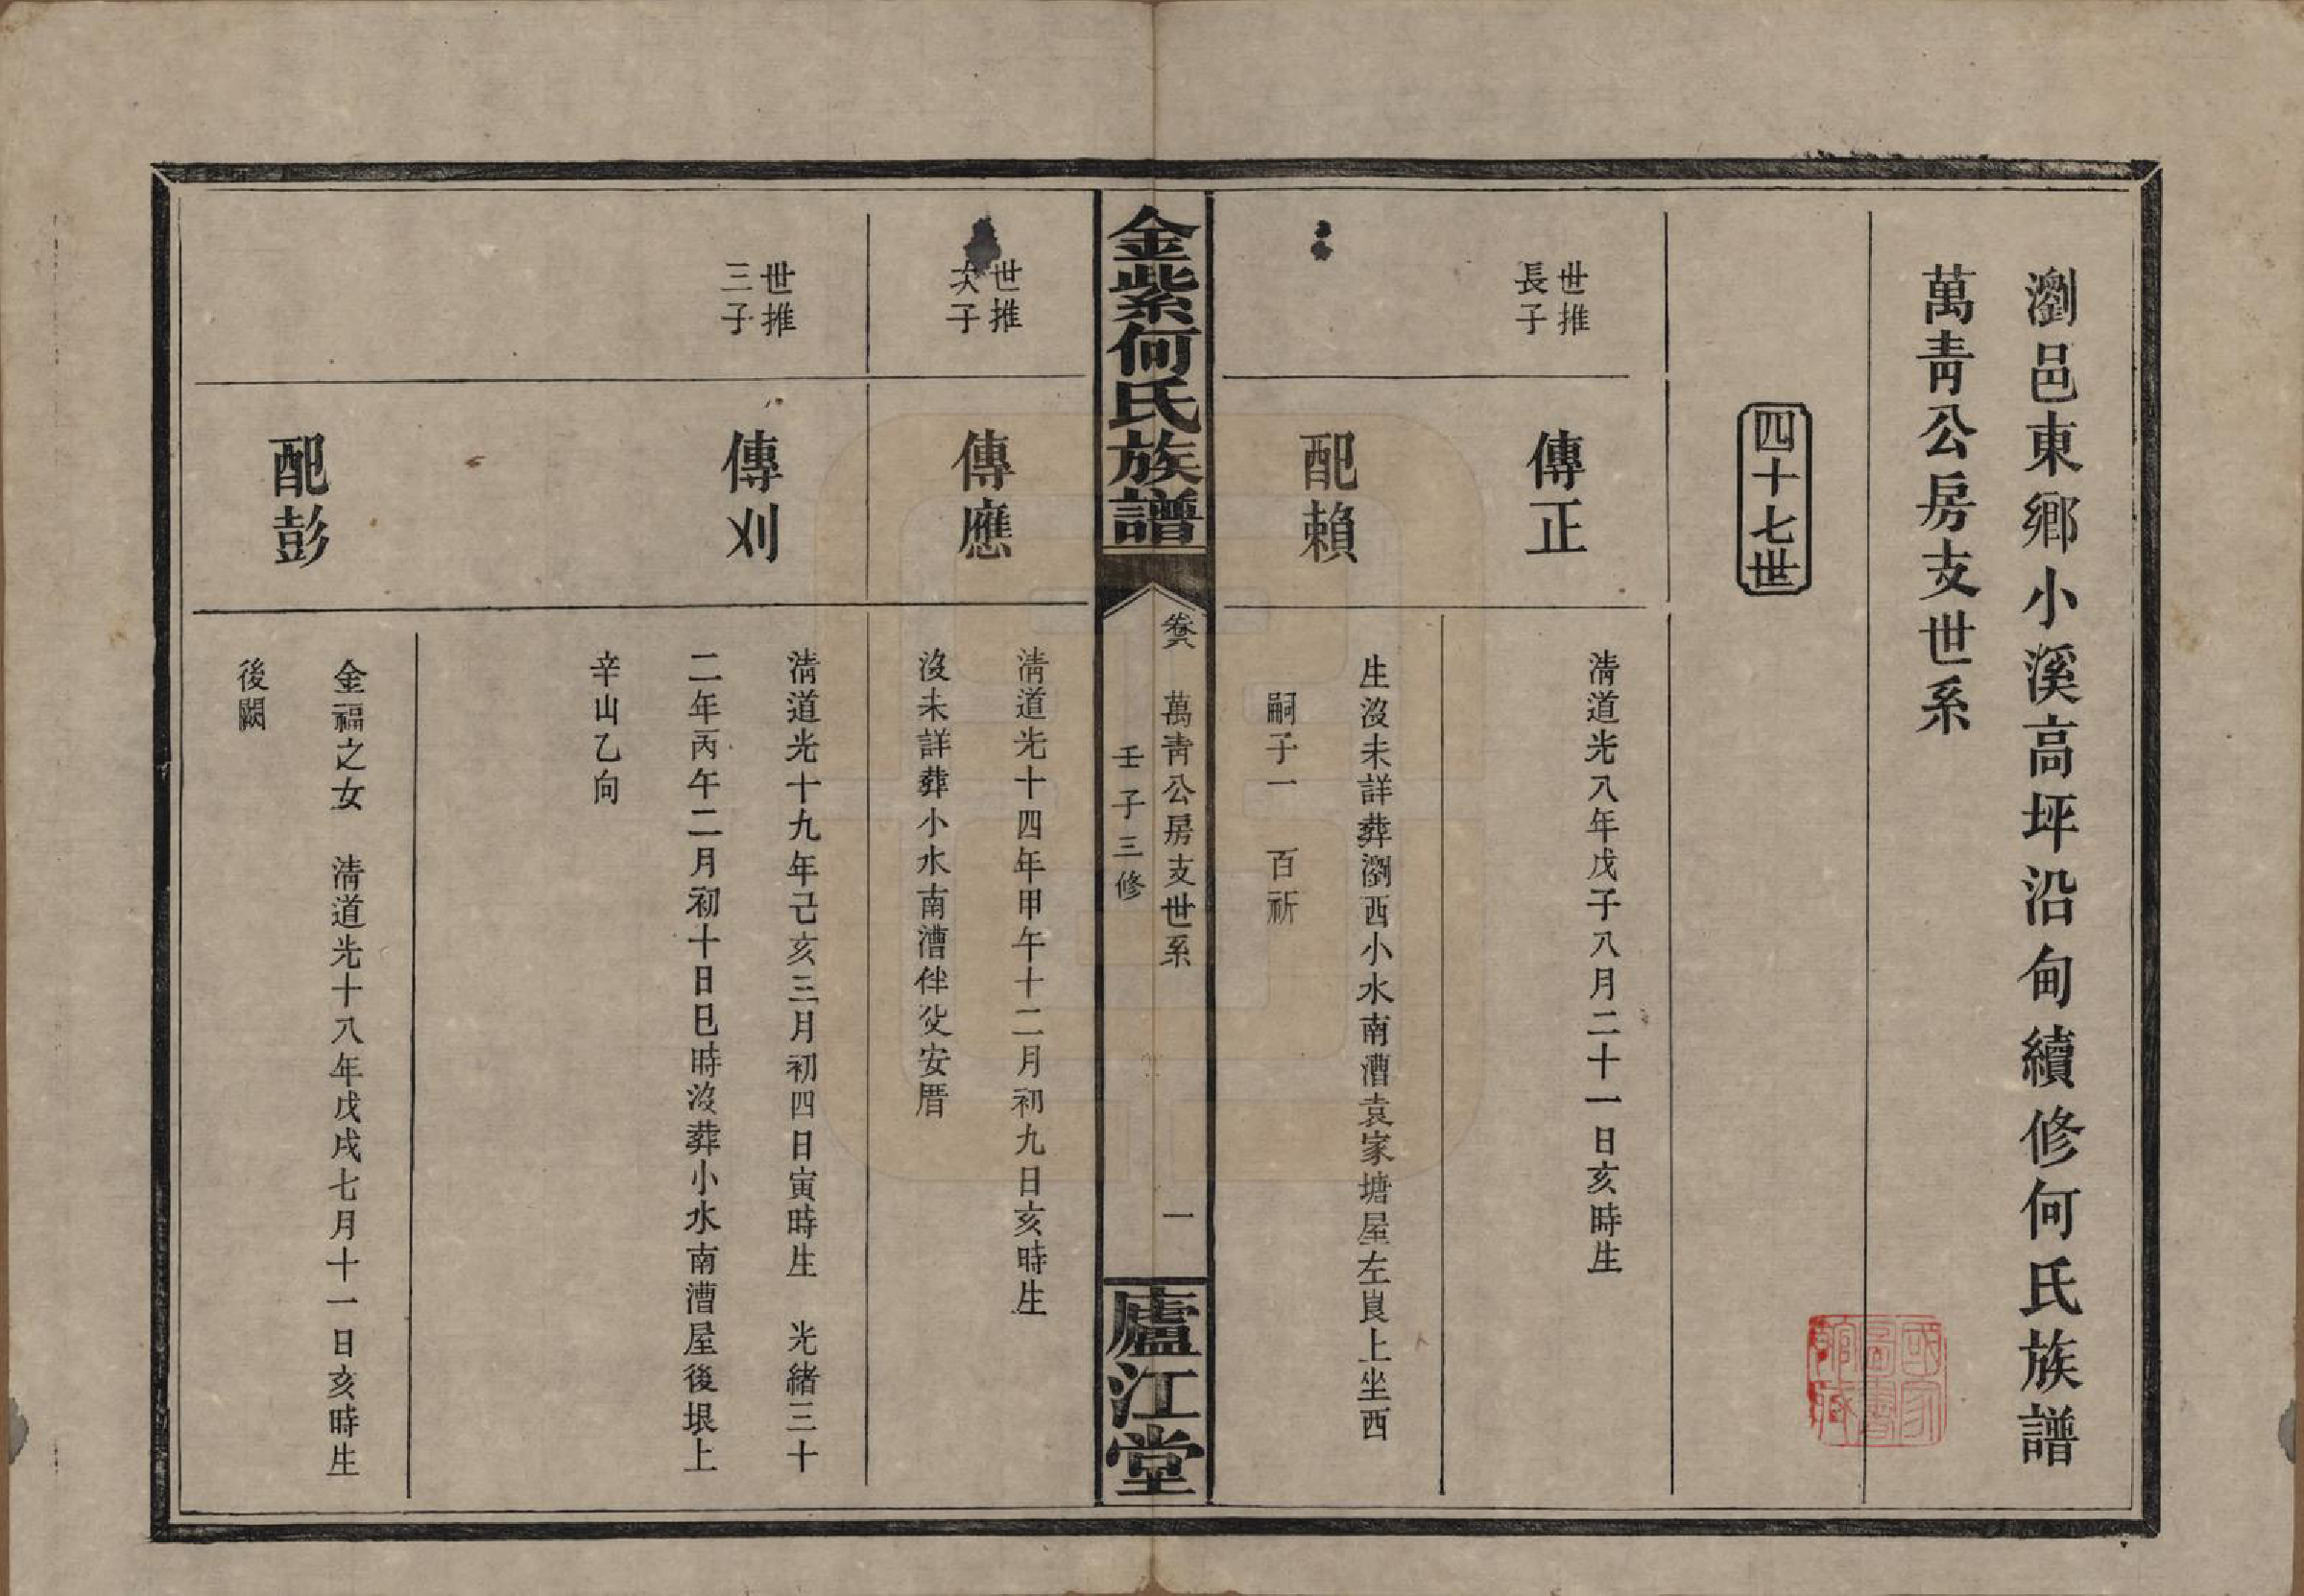 瀏邑東鄉小溪高坪沿甸續修何氏族譜
萬青公房支世系
四十七世
世推
長子
傳正
清道光八年戊子八月二十一日亥時生
配賴
生沒未詳葬瀏西小水南漕袁家塘屋左崀上坐西
嗣子一　百祈
金紫何氏族譜
卷六　萬青公房支世系　一
壬子三修
廬江堂
世推
次子
傳應
清道光十四年甲午十二月初九日亥時生
沒未詳葬小水南漕伴父安厝
世推
三子
傳刈
清道光十九年己亥三月初四日寅時生　光緒三十
二年丙午二月初十日巳時沒葬小水南漕屋後垠上
辛山乙向
配彭
金福之女　清道光十八年戊戌七月十一日亥時生
後闕
國家
圖書
館藏